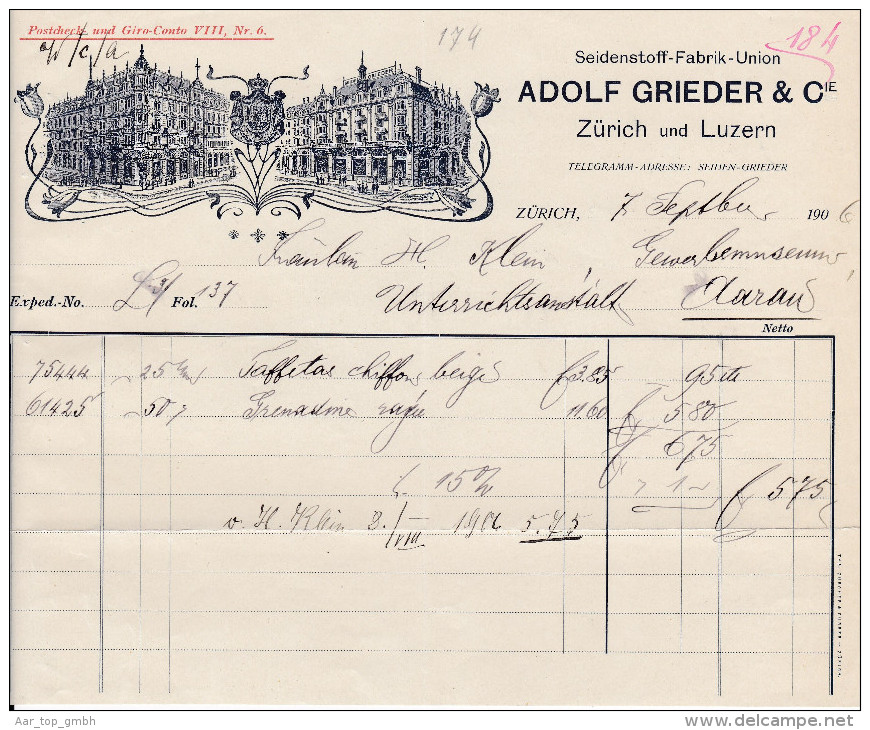 Postcheck und Giro-Conto VIII, Nr. 6.
174
184
Seidenstoff-Fabrik-Union
ADOLF GRIEDER & CIE
Zürich und Luzern
TELEGRAMM-ADRESSE: SEIDEN-GRIEDER
ZÜRICH, 7. Septber 1906
Fräulein H. Klein, Gewerbemuseum,
Exped.-No. Fol. 137 Unterrichtsanstalt Aarau
Netto
75444 25 Taffetas chiffon beige 3.85 95
61425 50 Grenadine rayée 11.60 5 80
6 75
15% 1 – 5 75
v. H. Klein 1906 5.75
Aar_top_gmbh
delcampe.net